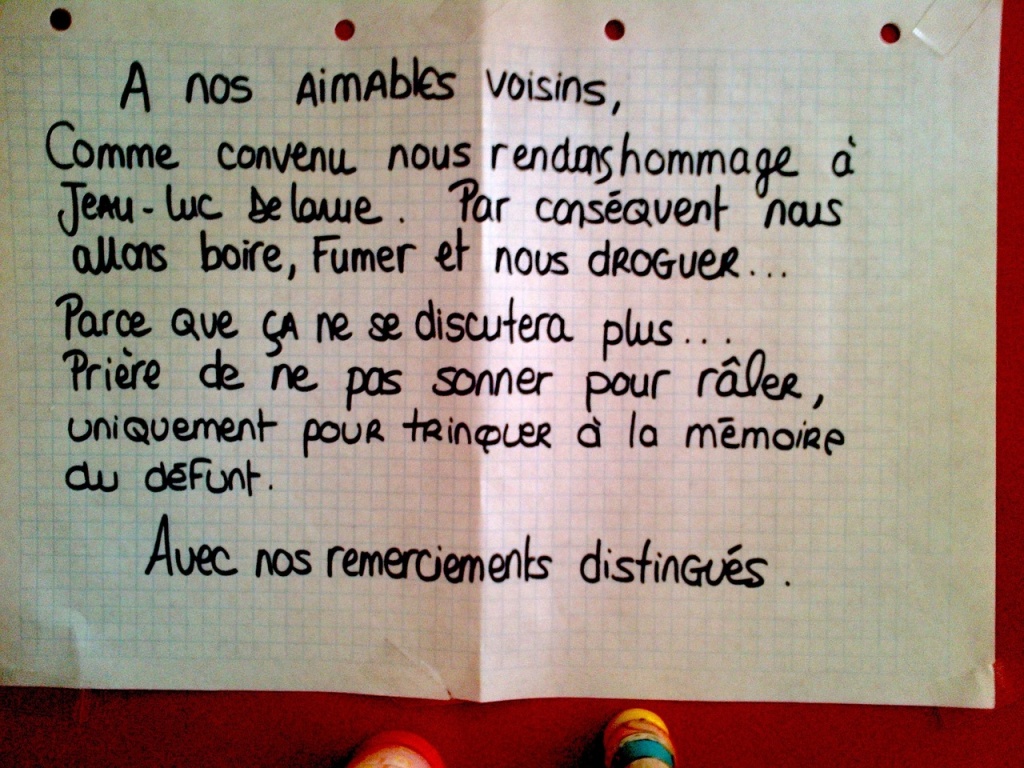 A nos aimables voisins,
Comme convenu nous rendons hommage à
Jean-Luc Delarue. Par conséquent nous
allons boire, Fumer et nous droguer...
Parce que ça ne se discutera plus...
Prière de ne pas sonner pour râler,
uniquement pour trinquer à la mémoire
du défunt.
Avec nos remerciements distingués.